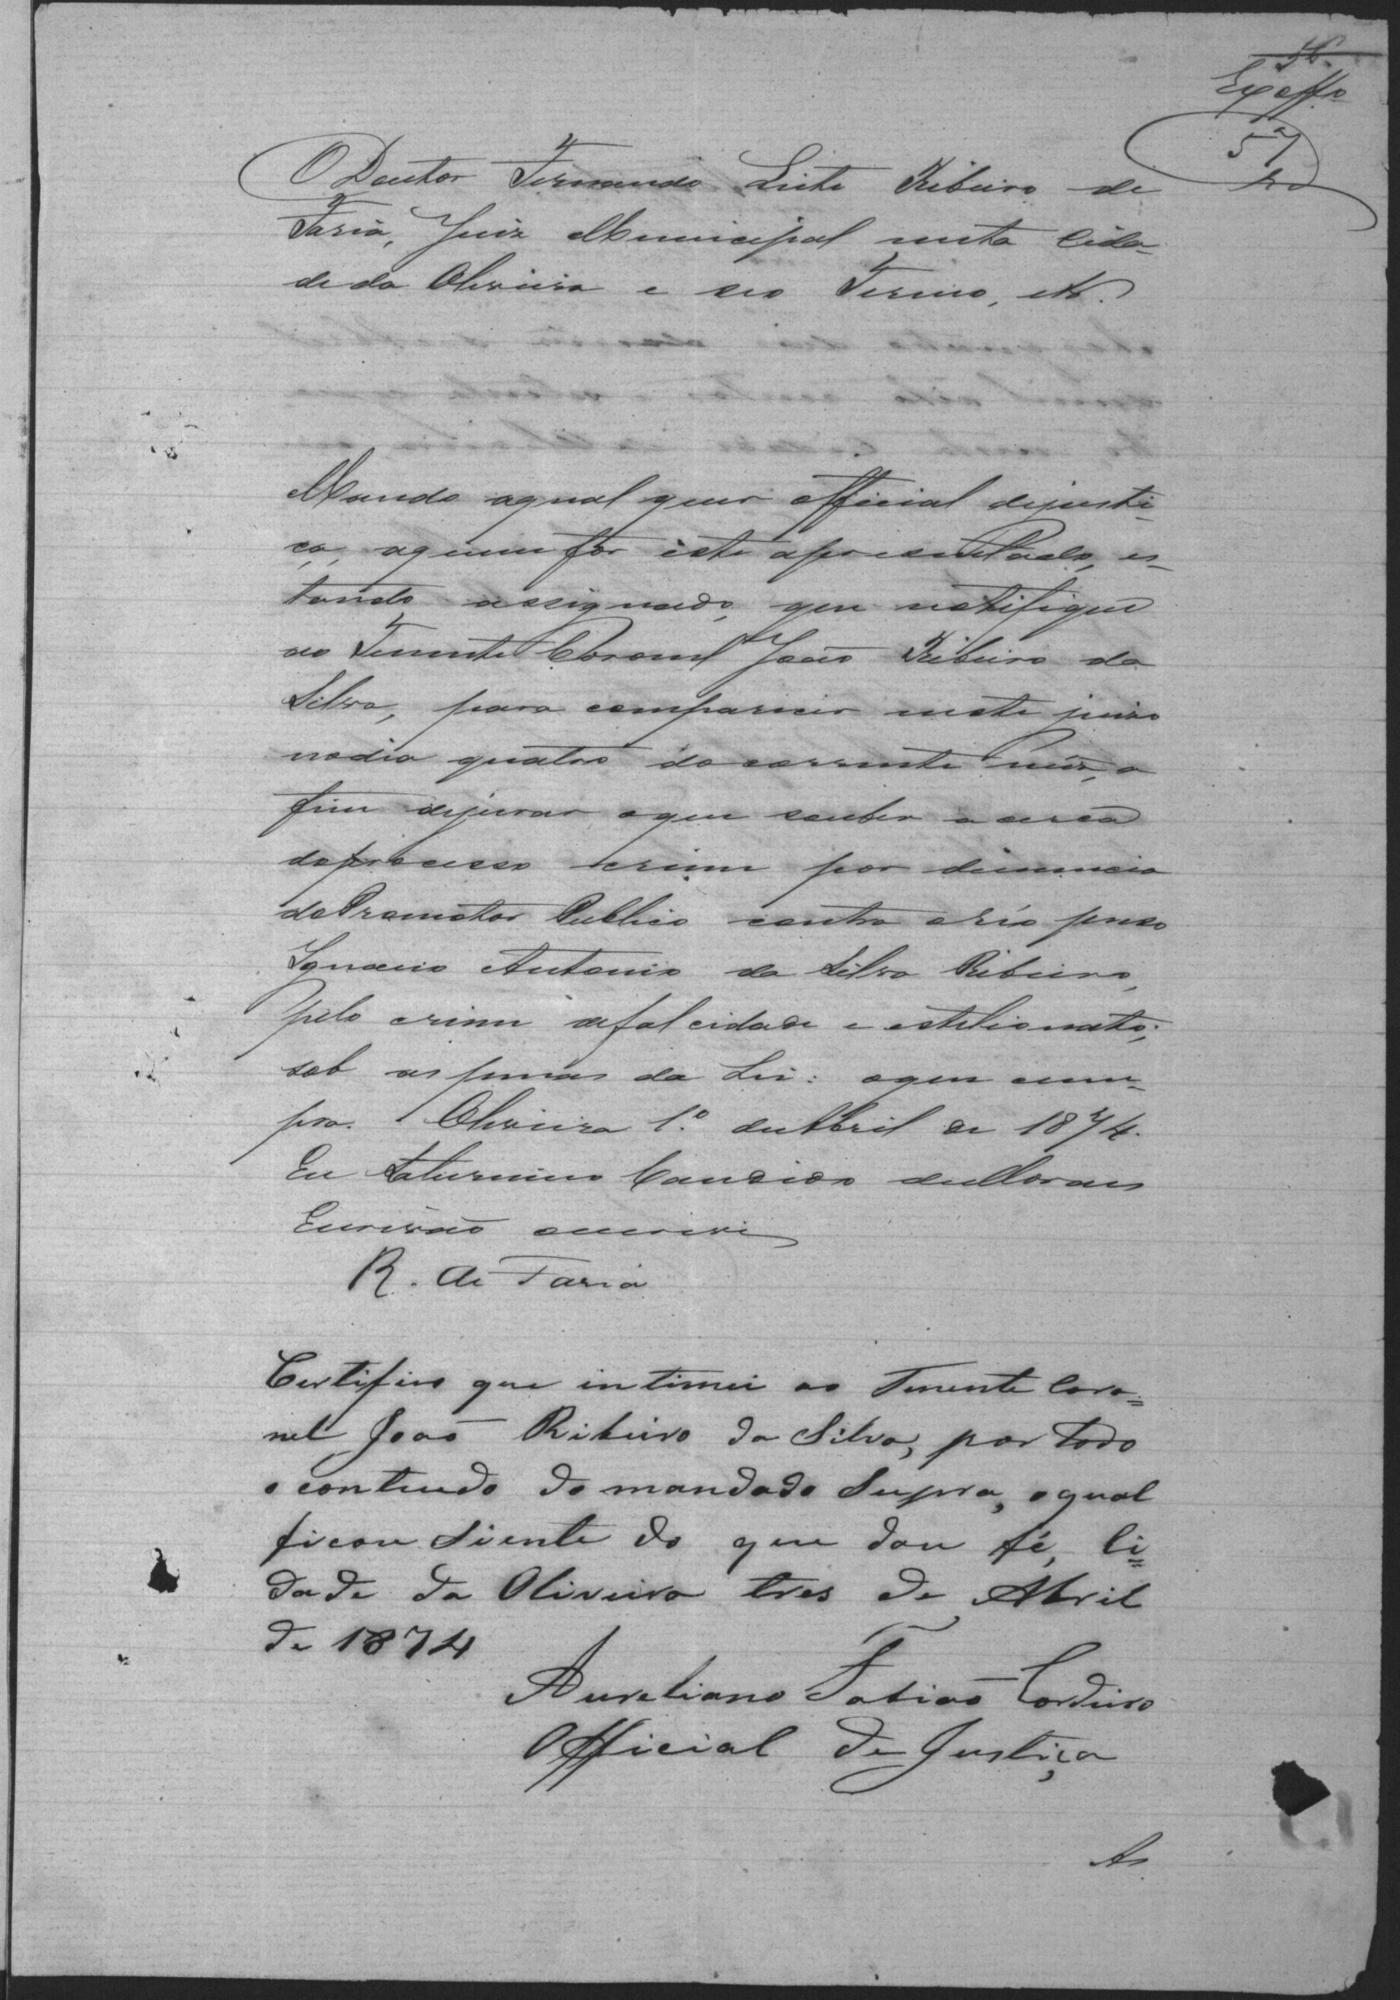 56.
Ex offo
57
O Doutor Fernando Leite Ribeiro de
Faria, Juiz Municipal nesta Cida-
de da Oliveira e seo Termo, etc.
Mando aqual quer official dejusti-
ça, aquem for este apresentado, es-
tando assignado, que notifique
ao Tenente Coronel João Ribeiro da
Silva, para comparecer neste juizo
nodia quatro do corrente mez, a
fim dejurar oque souber a cerca
doprocesso crime por denuncia
doPromotor Publico contra oréo preso
Ignacio Antonio da Silva Ribeiro,
pelo crime defalcidade e estelionato;
sob as penas da Lei: oque cum-
pra. Oliveira 1.º deAbril de 1874.
Eu Saturnino Candido deMoraes
Escrivão escrevi
R. de Faria
Certifico que intimei ao Tenente Coro=
nel João Ribeiro da Silva, por todo
o contiudo do mandado Supra, oqual
ficou Siente do que dou fé, Ci=
dade da Oliveira tres de Abril
de 1874
Aureliano Fabião Cordeiro
Official de Justiça